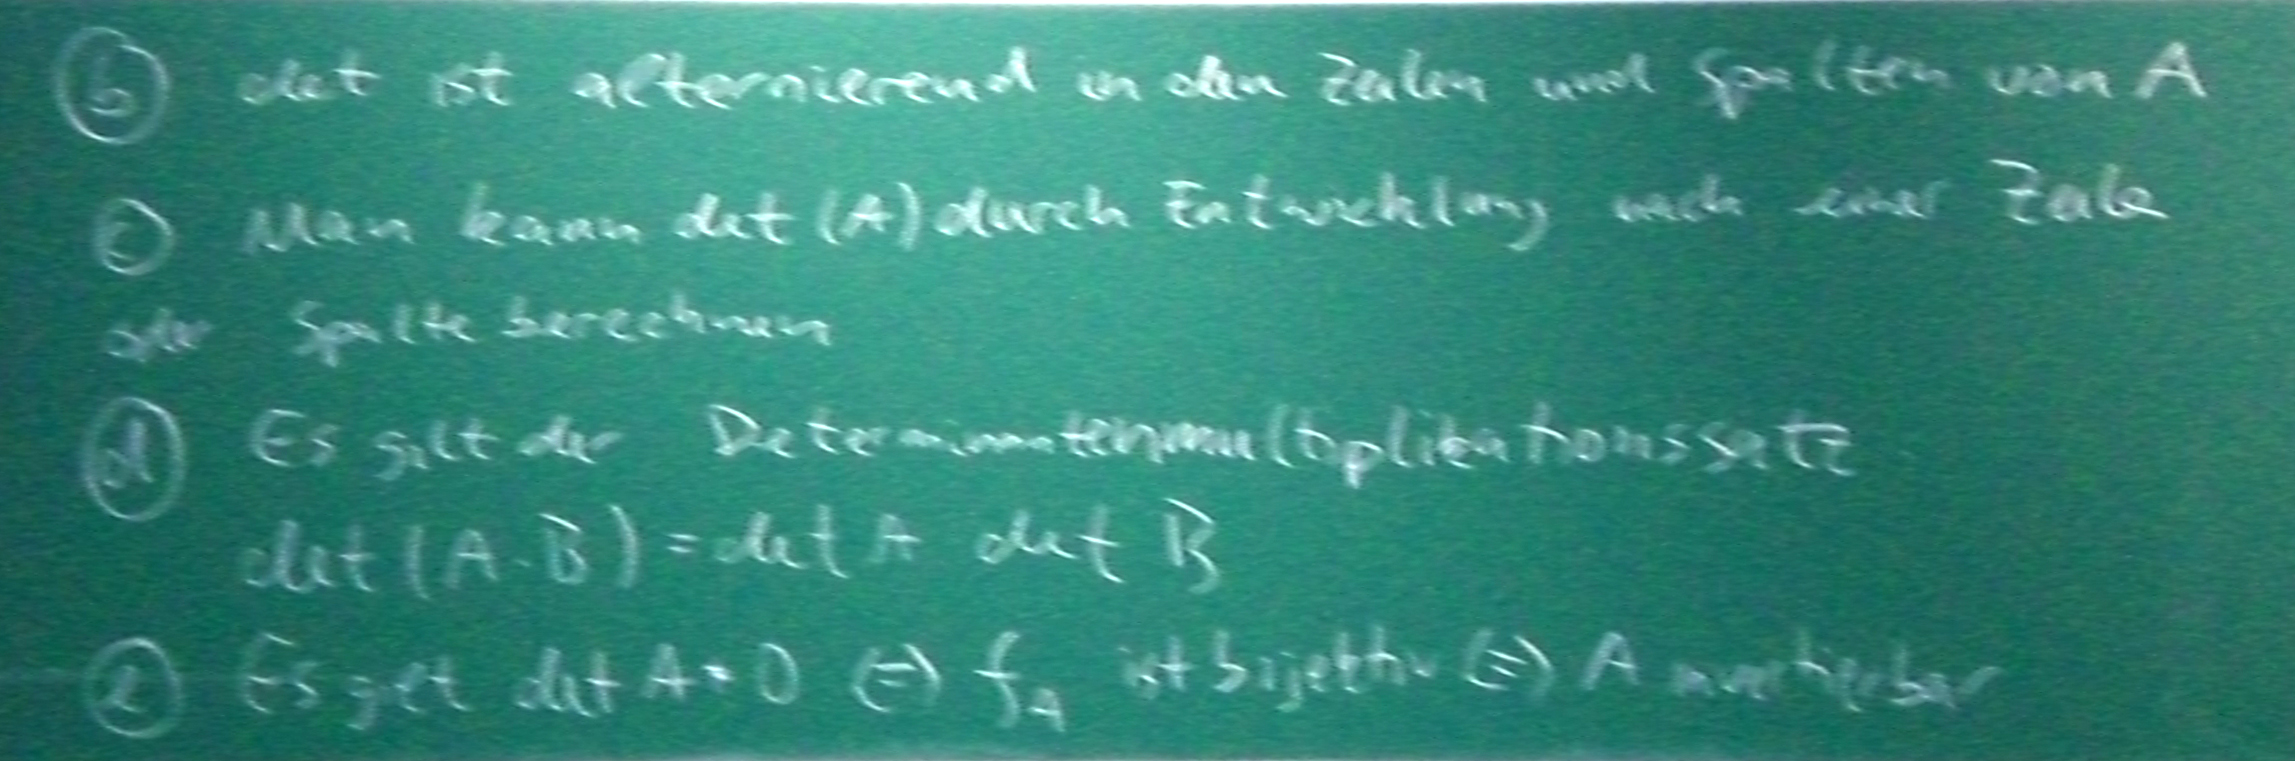 (b) det ist alternierend in den Zeilen und Spalten von A
(c) Man kann det (A) durch Entwicklung nach einer Zeile
oder Spalte berechnen
(d) Es gilt der Determinantenmultiplikationssatz
det (A · B) = det A det B
(e) Es gilt det A = 0 ⇔ f_A ist bijektiv ⇔ A invertierbar